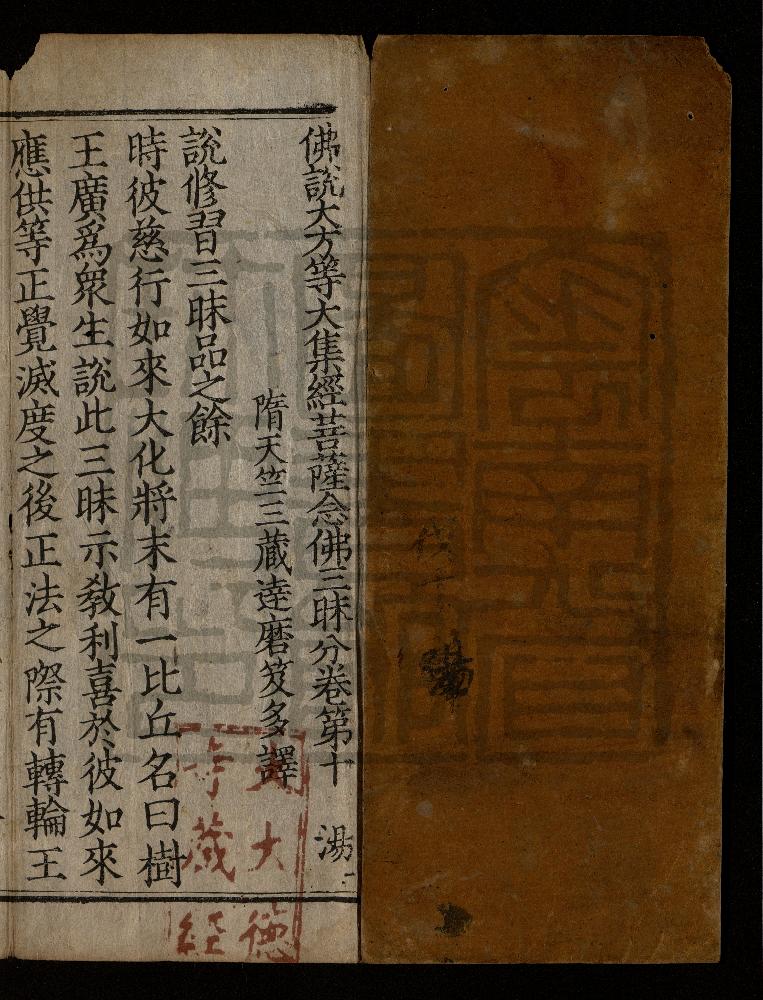 佛說大方等大集經菩薩念佛三昧分卷第十 湯
隋天竺三藏達磨笈多譯
說修習三昧品之餘
時彼慈行如來大化將末有一比丘名曰樹
王廣為衆生說此三昧示教利喜於彼如來
應供等正覺滅度之後正法之際有轉輪王
大德
寺藏經
湯